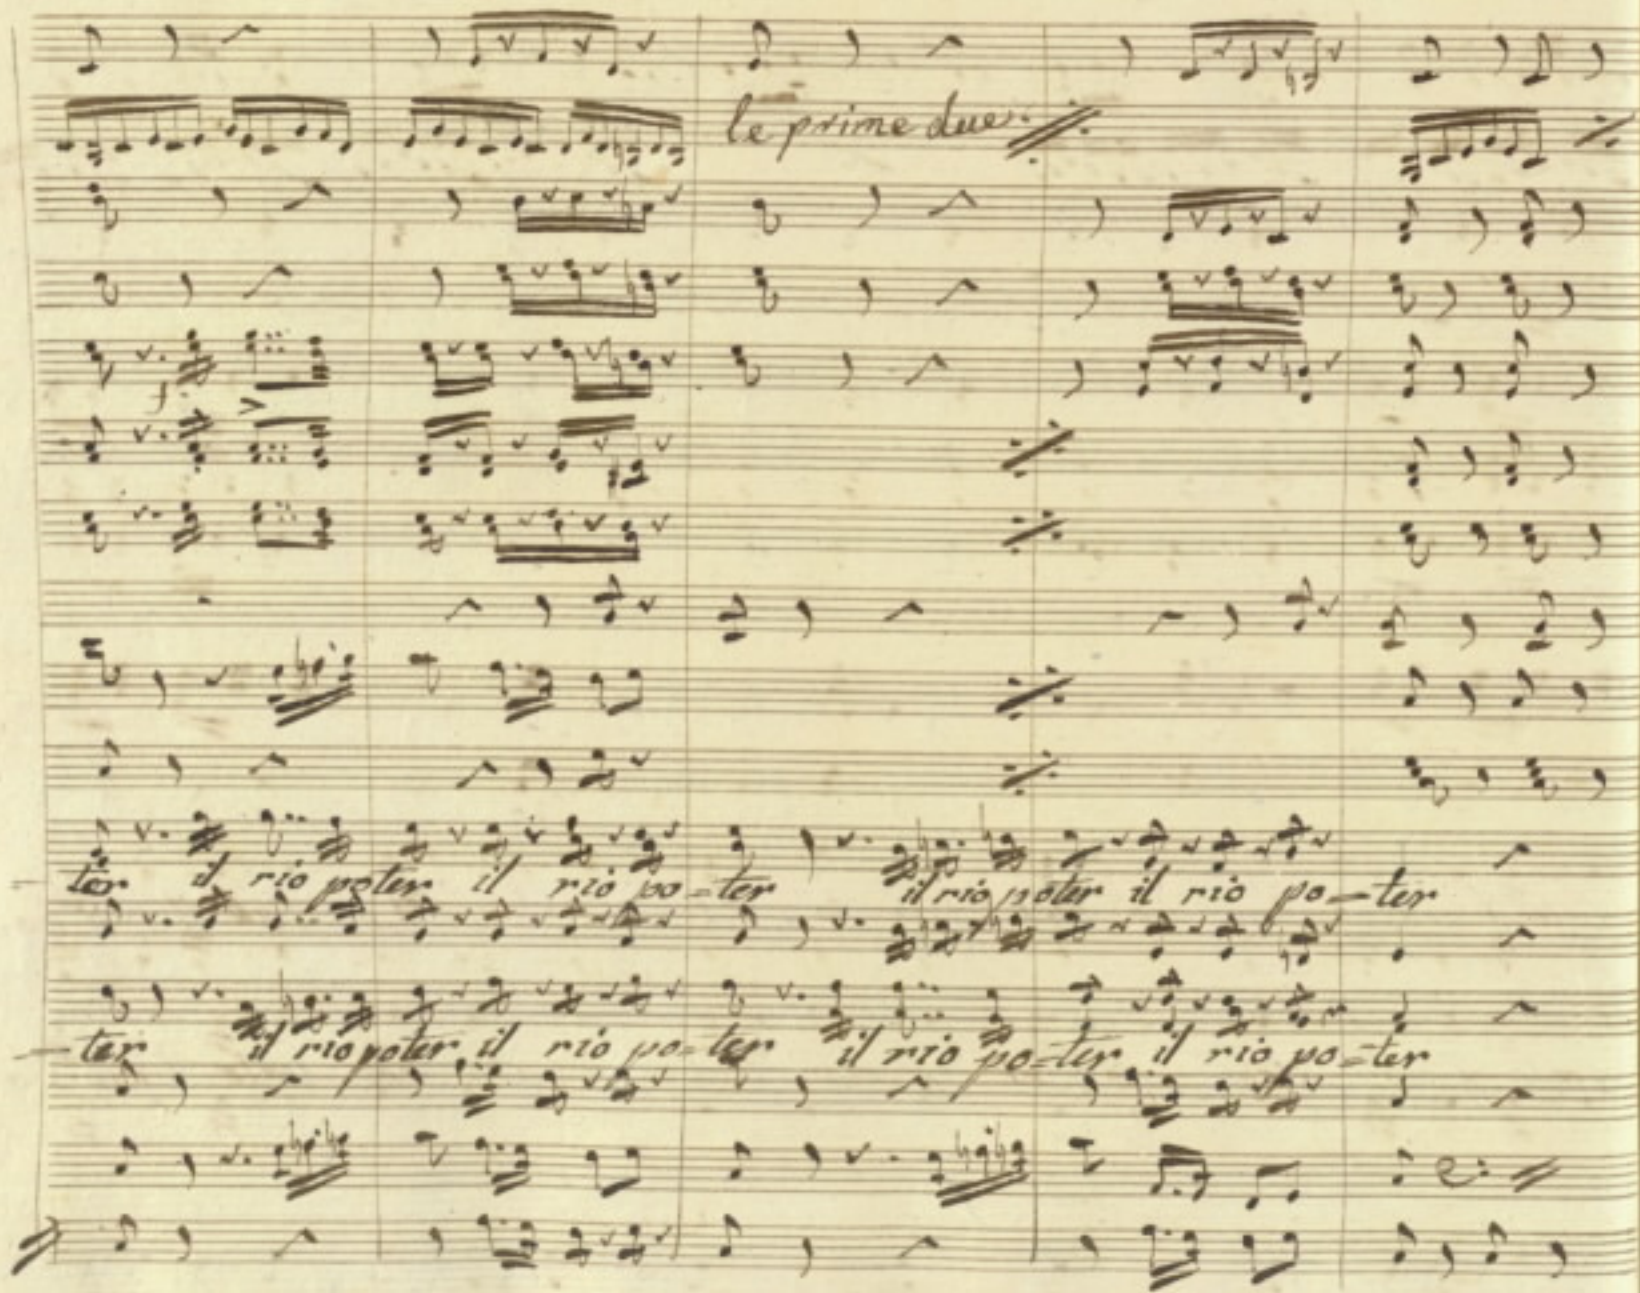 le prime due
f
ter il rio poter il rio po-ter il rio poter il rio po-ter
ter il rio poter il rio po-ter il rio po-ter il rio po-ter